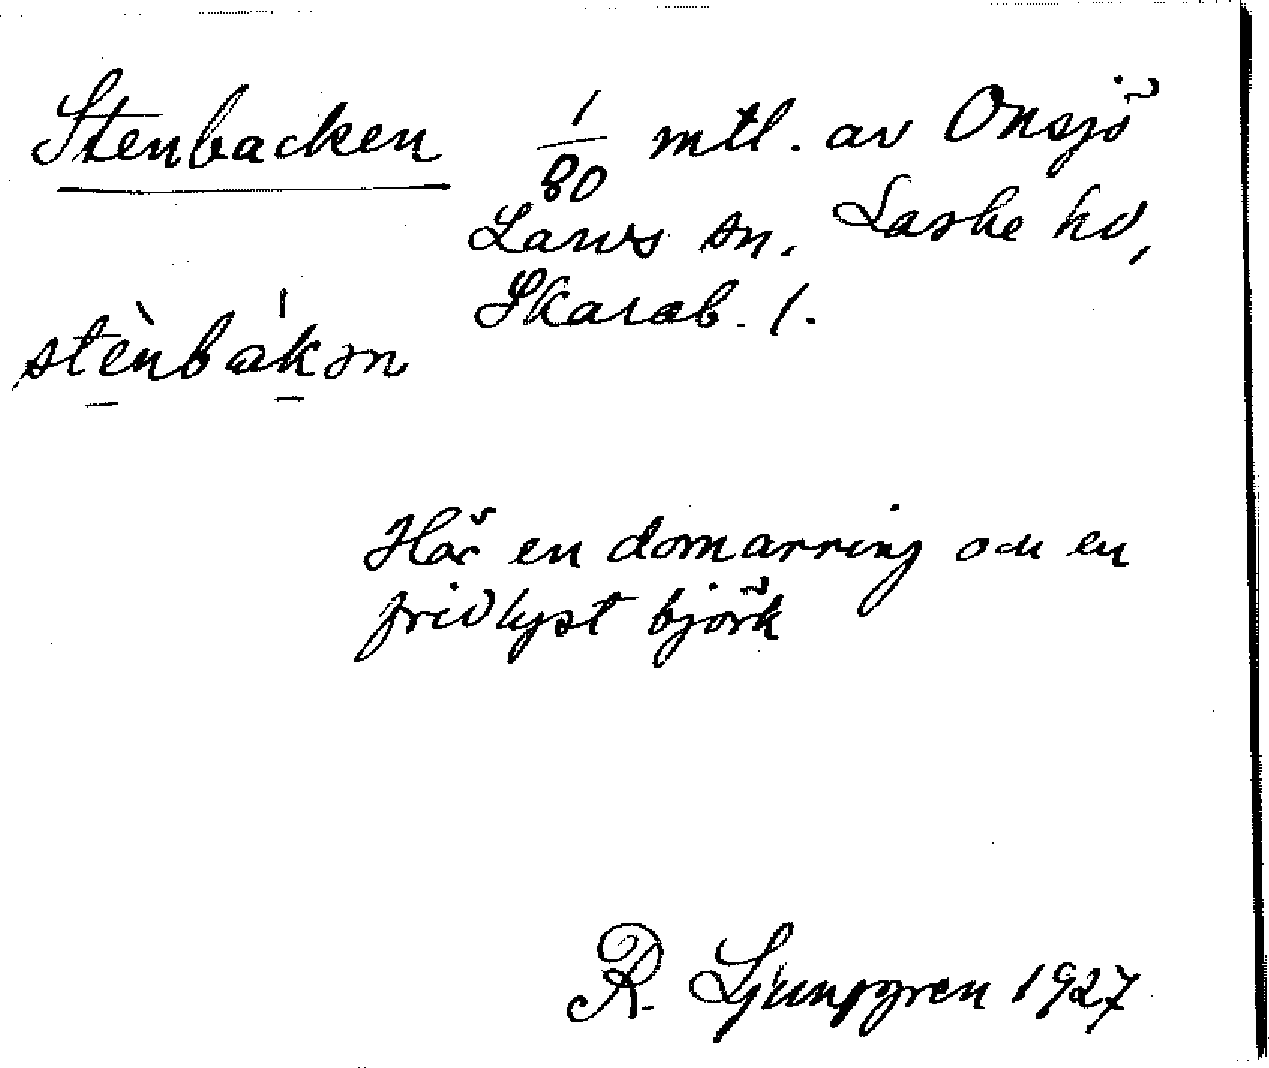 Stenbacken 1/80 mtl. av Onsjö
Larvs sn. Laske hd,
Skarab. l.
stènbákən
Här en domarring och en
fridlyst björk
R. Ljunggren 1927